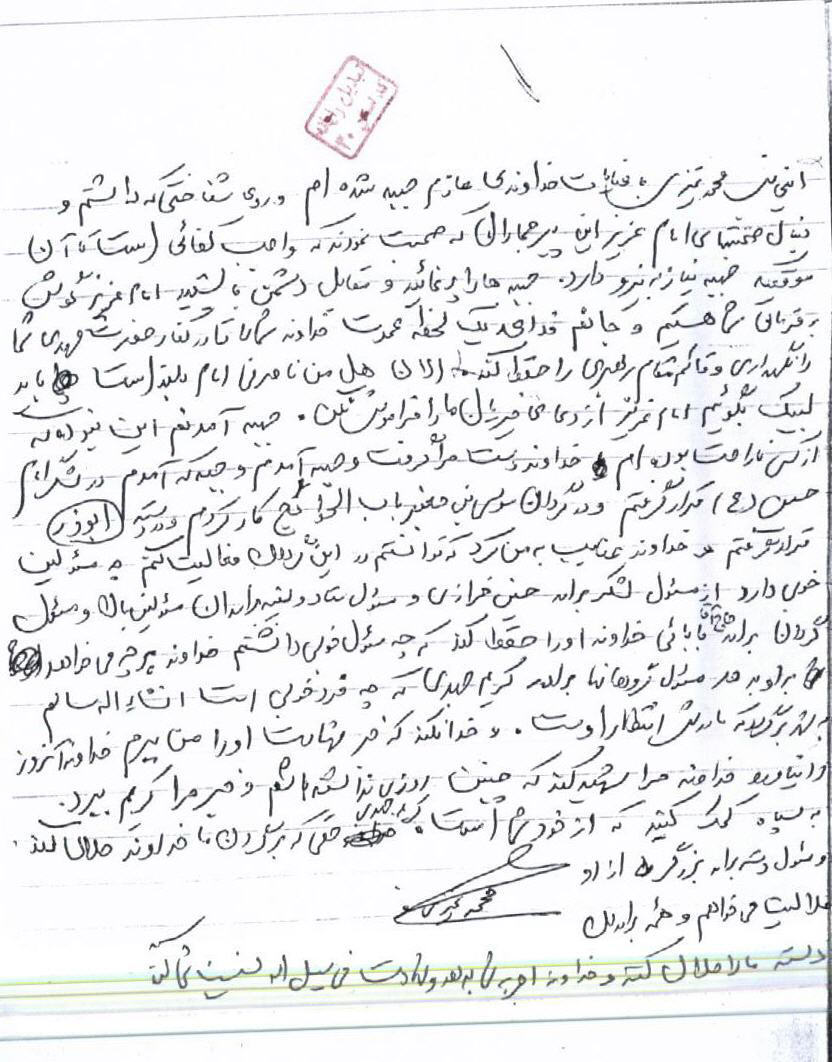 اینجانب محمد عزیزی با عنایت خداوندی عازم جبهه شده ام و روی شناختی که داشتم و
دنبال صحبتهای امام عزیز این پیر جماران که صحبت نمودند که واجب کفائی است تا آن
موقعیکه جبهه نیاز به نیرو دارد. جبهه ها را پر نمائید و مقابل دشمن باشید امام عزیز گوش
به فرمان شما هستیم و جانم فدای یک لحظه عمرت خداوند شما را تا در کنار حضرت مهدی شما
را نگهداری و قائم مقام رهبری را حفظ کند الان هل من ناصر امام بلند است باید
لبیک بگوئیم امام عزیز از دعای خیرتان ما را فراموش نکن. جبهه آمدنم این نبود که
از کسی ناراحت بوده ام خداوند دست مرا گرفت و جبهه آمدم و جبهه که آمدم در لشگر امام
حسین (ع) قرار گرفتم و در گردان موسی بن جعفر باب الحوائج کار کردم و دسته ابوذر
قرار گرفتم و خداوند نصیب به من کرد که توانستم در این گردان فعالیت کنم چه مسئولین
خوبی دارد از مسئول لشگر برادر حسین خرازی و مسئول ستاد و بقیه برادران مسئولین بالا و مسئول
گردان برادر حاج آقا بابائی خداوند او را حفظ کند که چه مسئول خوبی داشتم خداوند هر چه می خواهد
به او بدهد مسئول گروهانها برادر کریم مهدی که چه فرد خوبی است انشاء اله سالم
به شهر برگردد که مادرش انتظار اوست. و خدا نکند که خبر شهادت او را من ببرم خداوند آنروز
را نیاورد خداوند مرا شهید کند که چنین روزی نداشته باشم و خبر مرا کریم ببرد.
به سپاه کمک کنید که از خود شما است. کریم مهدی حقی که بر گردن ما خداوند حلال کند.
و مسئول دسته برادر بزرگر از او
حلالیت می خواهم و همه برادران
محمد عزیزی
دسته ما را حلال کنند و خداوند اجر به شما بدهد و شهادت فی سبیل اله نصیب شما کند